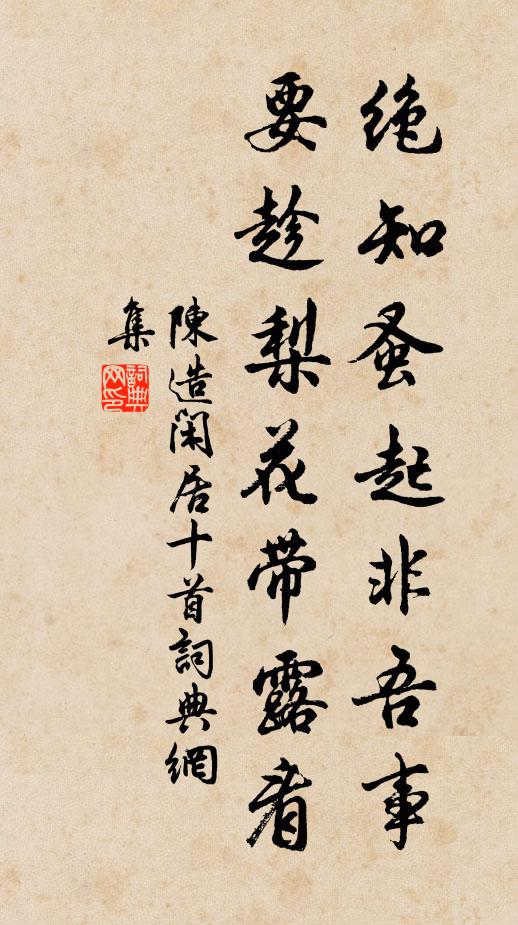 绝知蚤起非吾事
要趁梨花带露看
陳造閑居十首詞典網
集
詞典
网印